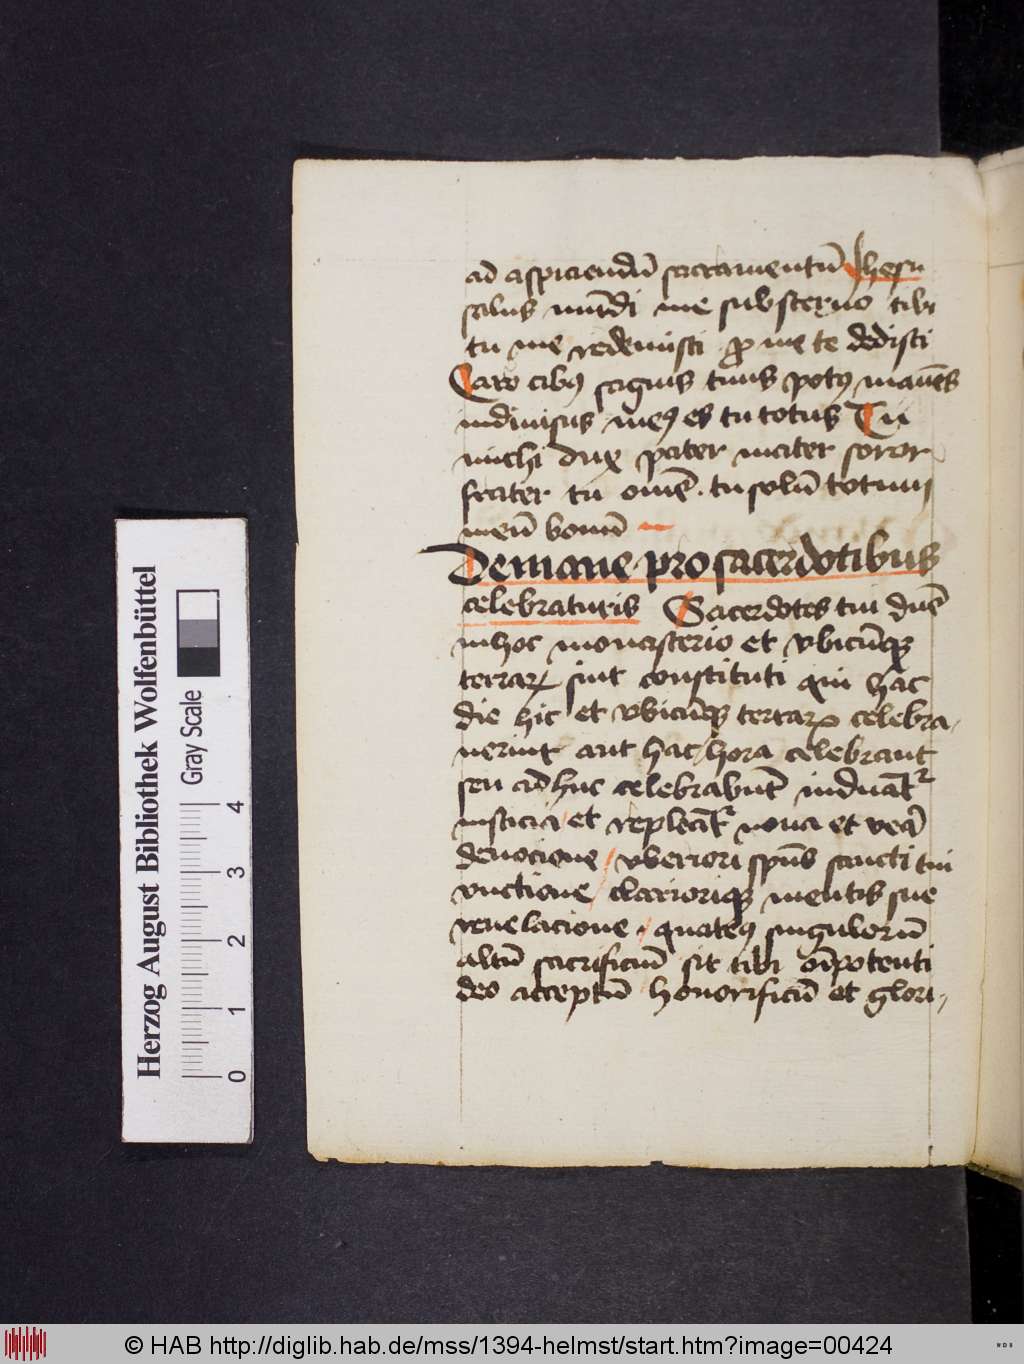 ad aspiciendū sacramentū Jhesu
salus mūdi me substerno tibi
tu me redemisti ꝓ me te dedisti
Caro cibꝰ sāguis tuus potꝰ manēs
indiuisus meꝰ es tu totus Tu
michi dux pater mater soror
frater tu omē . tu solū totum
meū bonū
De mane pro sacerdotibus
celebraturis Sacerdotes tui dn̄e
in hoc monasterio et vbicūqꝫ
terraꝝ sint constituti qui hac
die hic et vbicūqꝫ terraꝝ celebra
uerint aut hac hora celebrant
seu adhuc celebrabūt induāt᷑
iusticia et repleāt᷑ noua et vera
deuocione / vberiori spūs sancti tui
vnctione / clarioriqꝫ mentis sue
reuelacione / quateꝰ singulorū
altū sacrificiū sit tibi oīpotenti
deo acceptū honorificū et glori
Herzog August Bibliothek Wolfenbüttel
Gray Scale
0 1 2 3 4
© HAB http://diglib.hab.de/mss/1394-helmst/start.htm?image=00424